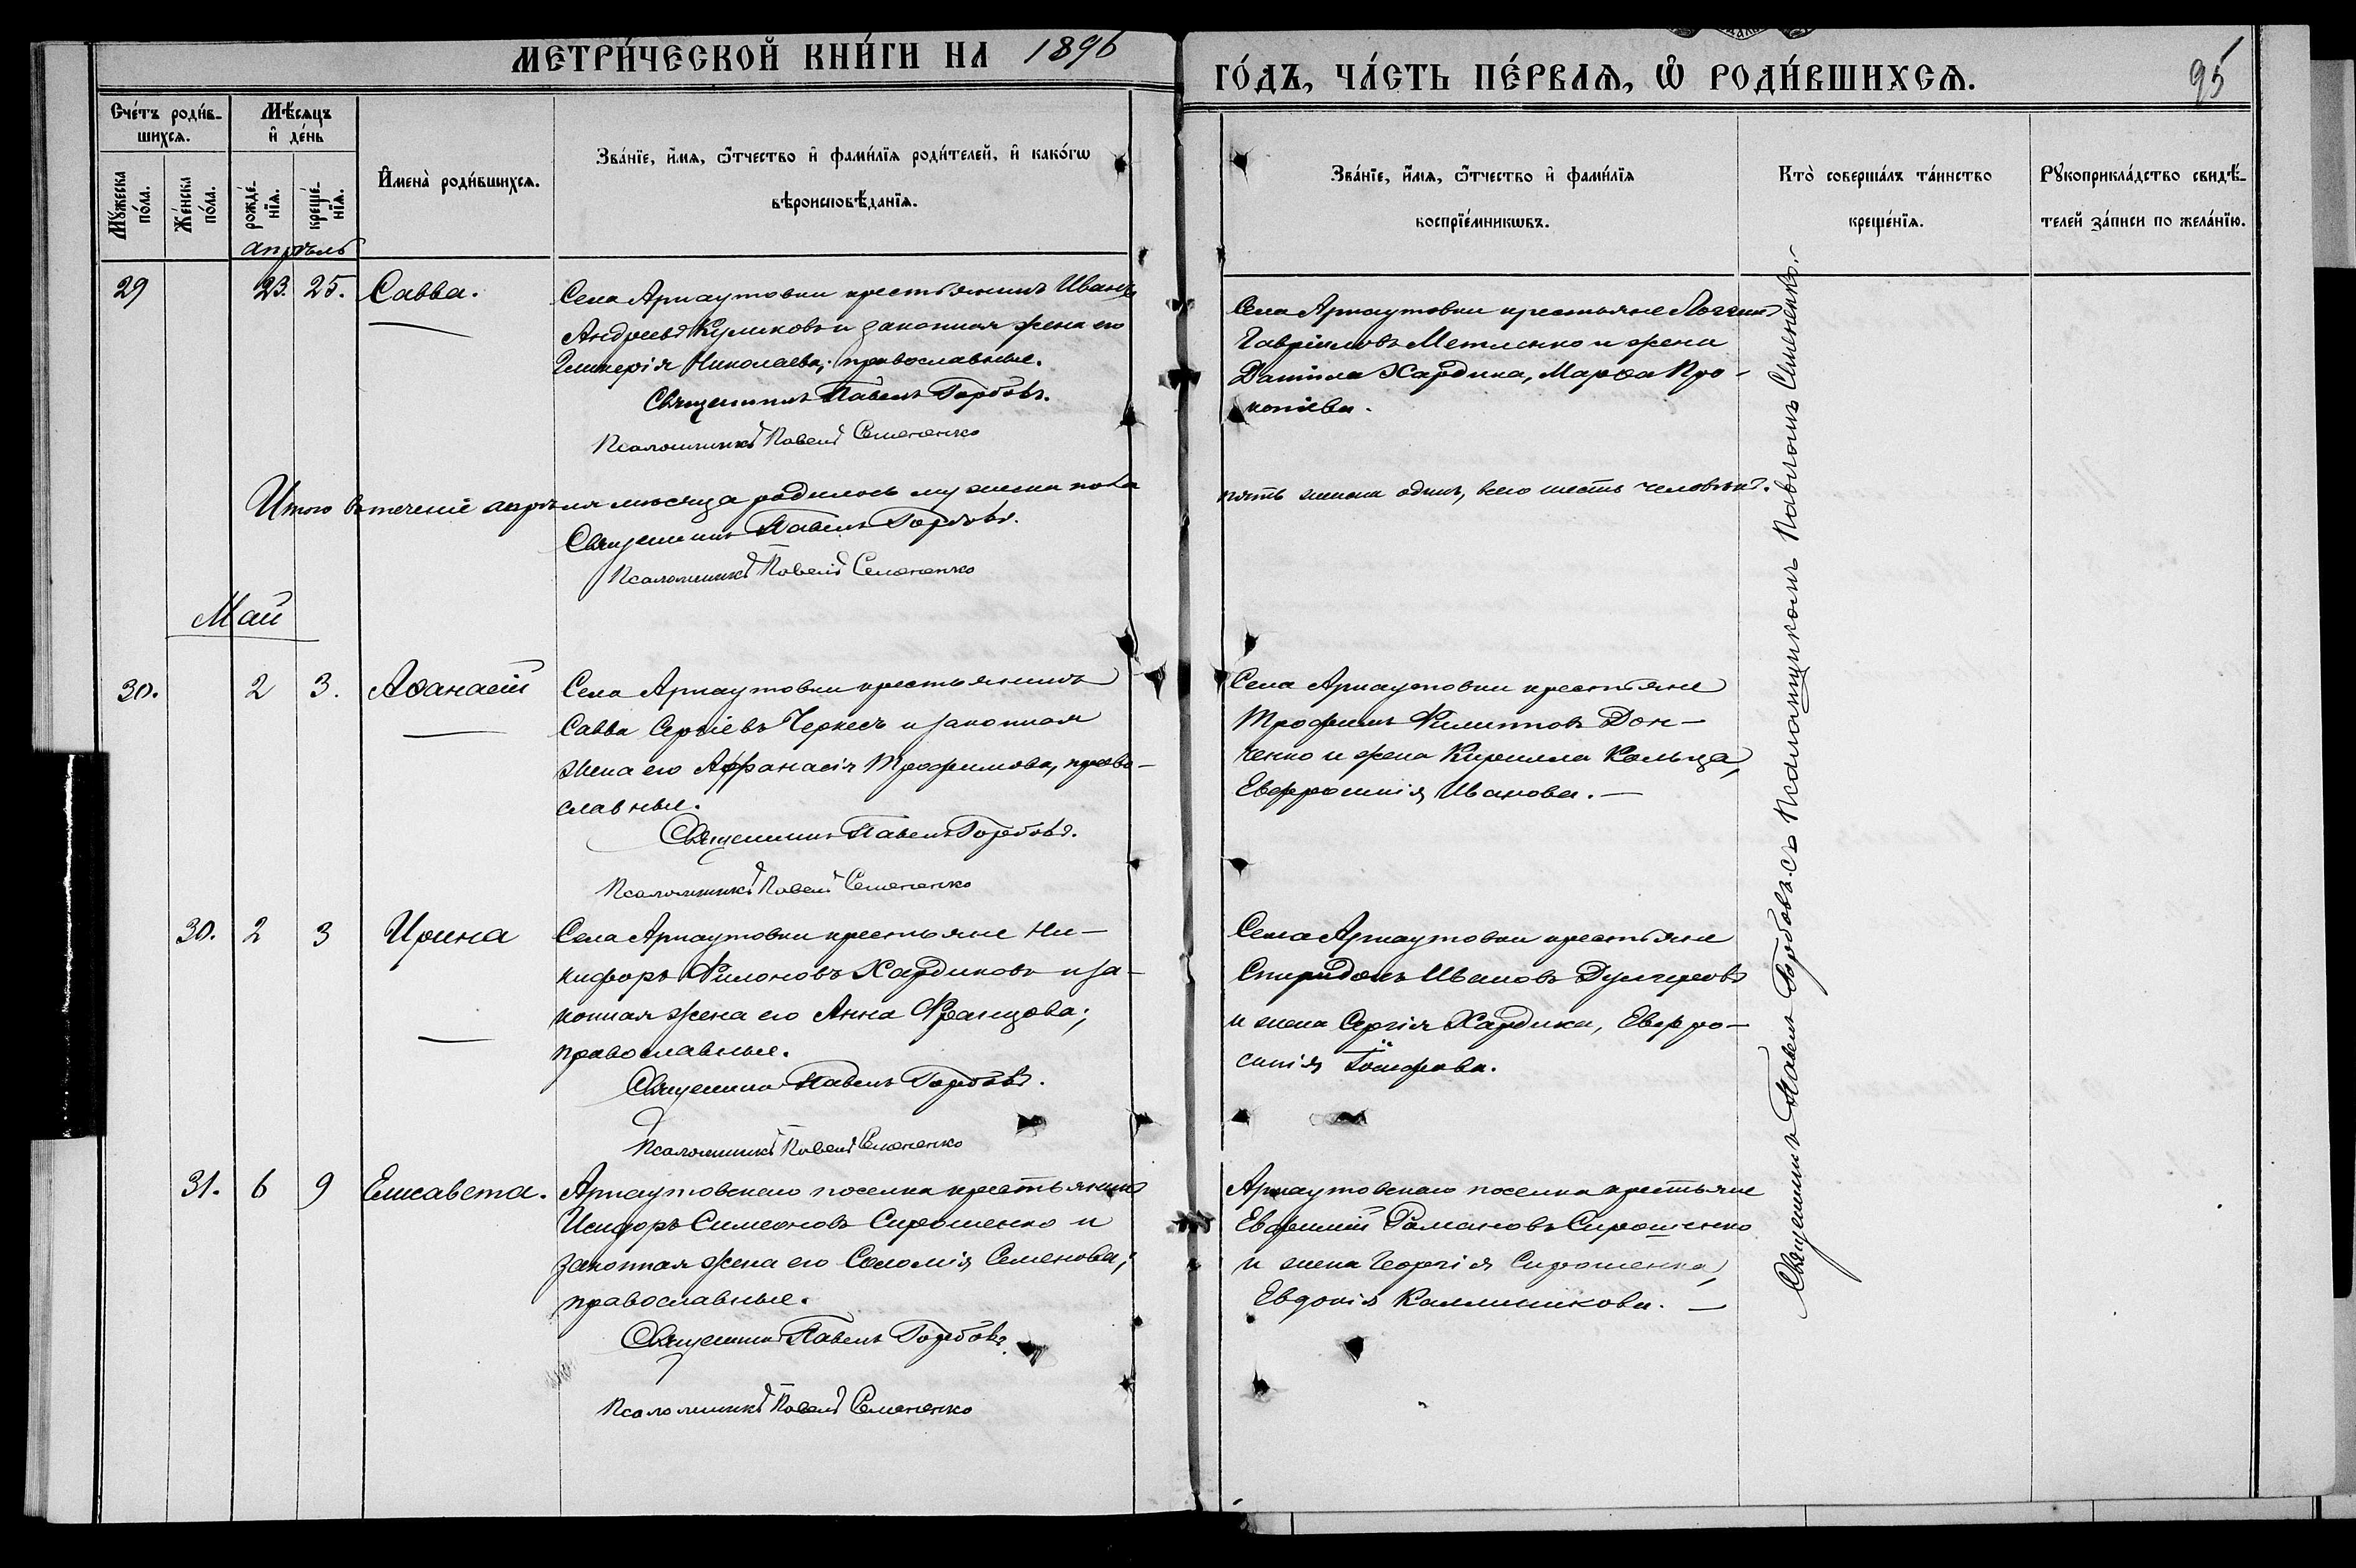 МЕТРИ́ЧЕСКОЙ КНИ́ГИ НА 1896
ГО́ДЪ, ЧА́СТЬ ПЕ́РВАѦ, Ѡ҆ РОДИ́ВШИХСѦ.
95
Сче́тъ роди́в-
шихсѧ.
Мѣ́сѧцъ
и҆ де́нь
Мꙋ́жеска
по́ла.
Же́нска
по́ла.
рожде́-
нїѧ.
креще́-
нїѧ.
И҆мена̀ роди́вшихсѧ.
Зва́нїе, и҆́мѧ, ѻ҆́тчество и҆ фами́лїѧ роди́телей, и҆ како́гѡ
вѣроисповѣ́данїѧ.
Зва́нїе, и҆́мѧ, ѻ҆́тчество и҆ фами́лїѧ
воспрїе́мникѡвъ.
Кто̀ соверша́лъ та́инство
креще́нїѧ.
Рꙋкоприкла́дство свидѣ́-
телей за́писи по жела́нїю.
апрѣль
29 23. 25. Савва.
Села Арнаутовки крестьянинъ Иванъ
Андреевъ Куликовъ и законная жена его
Гликерія Николаева; православные.
Священникъ Павелъ Горбовъ.
Псаломщикъ Павелъ Семененко
Села Арнаутовки крестьяне Логгинъ
Гавріиловъ Метленко и жена
Даніила Хардика, Марѳа Про-
копіева.
Итого въ теченіе апрѣля мѣсяца родилось мужеска пола
пять женска одинъ, всего шесть человѣкъ.
Священникъ Павелъ Горбовъ.
Псаломщикъ Павелъ Семененко
Май
30. 2 3. Аѳанасій
Села Арнаутовки крестьянинъ
Савва Сергіевъ Черкесъ и законная
жена его Афанасія Трофимова, право-
славные.
Священникъ Павелъ Горбовъ.
Псаломщикъ Павелъ Семененко
Села Арнаутовки крестьяне
Трофимъ Филипповъ Дон-
ченко и жена Кирилла Кольца,
Евфросинія Иванова. —
30. 2 3 Ирина
Села Арнаутовки крестьяне Ни-
кифоръ Филоновъ Хардиковъ и за-
конная жена его Анна Францова;
православные.
Священникъ Павелъ Горбовъ.
Псаломщикъ Павелъ Семененко
Села Арнаутовки крестьяне
Спиридонъ Ивановъ Дулгеровъ
и жена Сергія Хардика, Евфро-
синія
31. 6 9 Елисавета.
Арнаутовскаго поселка крестьянинъ
Исидоръ Симеоновъ Сирошенко и
законная жена его Соломія Семенова;
православные.
Священникъ Павелъ Горбовъ.
Псаломщикъ Павелъ Семененко
Арнаутовскаго поселка крестьяне
Евфимій Романовъ Сирошенко
и жена Георгія Сирошенка,
Евдокія Каллиникова. —
Священникъ Павелъ Горбовъ съ Псаломщикомъ Павломъ Семененко.